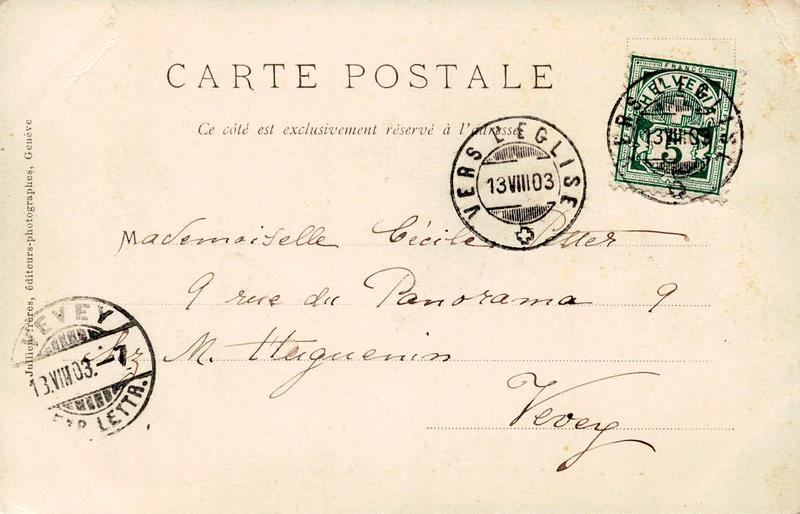 CARTE POSTALE
Ce côté est exclusivement réservé à l'adresse
FRANCO
HELVETIA
5
13 VIII 03
VERS L'EGLISE
13 VIII 03
Mademoiselle Cécile
9 rue du Panorama 9
chez M. Huguenin
Vevey
VEVEY
13.VIII 03.-7
EXP. LETTR.
Jullien frères, éditeurs-photographes, Genève